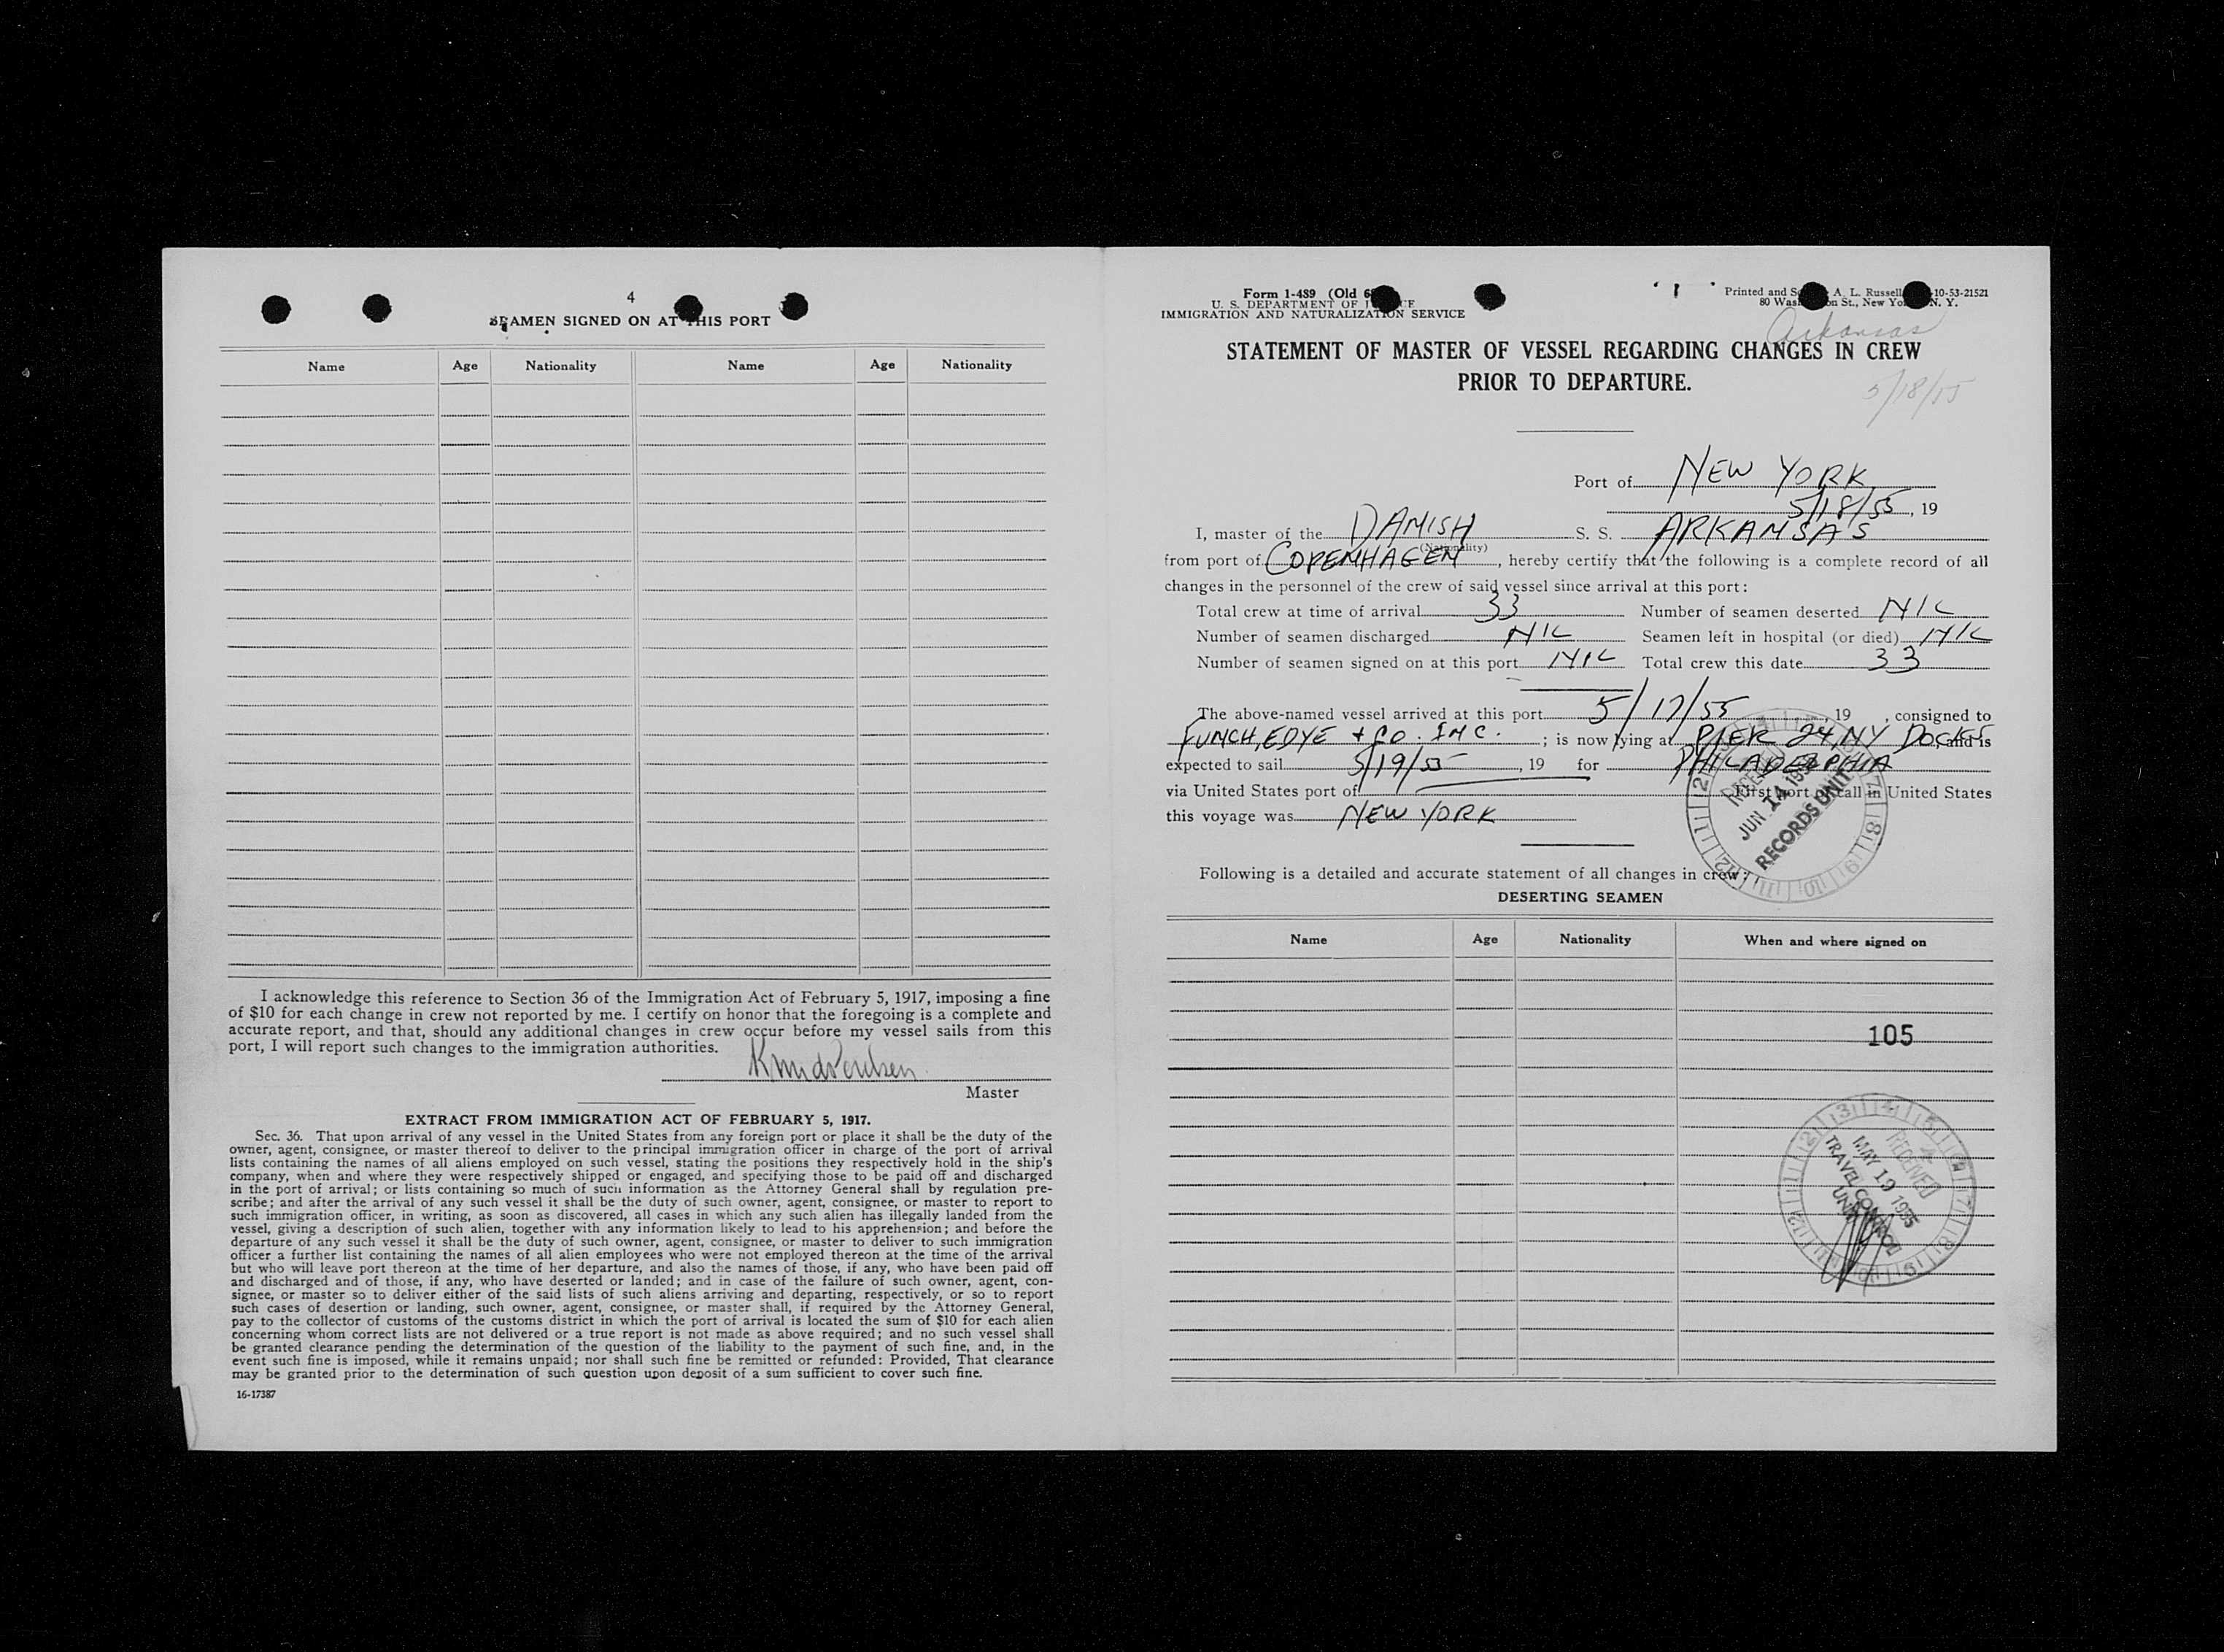 4
SEAMEN SIGNED ON AT THIS PORT
Name Age Nationality Name Age Nationality
I acknowledge this reference to Section 36 of the Immigration Act of February 5, 1917, imposing a fine
of $10 for each change in crew not reported by me. I certify on honor that the foregoing is a complete and
accurate report, and that, should any additional changes in crew occur before my vessel sails from this
port, I will report such changes to the immigration authorities.
Master
EXTRACT FROM IMMIGRATION ACT OF FEBRUARY 5, 1917.
Sec. 36. That upon arrival of any vessel in the United States from any foreign port or place it shall be the duty of the
owner, agent, consignee, or master thereof to deliver to the principal immigration officer in charge of the port of arrival
lists containing the names of all aliens employed on such vessel, stating the positions they respectively hold in the ship's
company, when and where they were respectively shipped or engaged, and specifying those to be paid off and discharged
in the port of arrival; or lists containing so much of such information as the Attorney General shall by regulation pre-
scribe; and after the arrival of any such vessel it shall be the duty of such owner, agent, consignee, or master to report to
such immigration officer, in writing, as soon as discovered, all cases in which any such alien has illegally landed from the
vessel, giving a description of such alien, together with any information likely to lead to his apprehension; and before the
departure of any such vessel it shall be the duty of such owner, agent, consignee, or master to deliver to such immigration
officer a further list containing the names of all alien employees who were not employed thereon at the time of the arrival
but who will leave port thereon at the time of her departure, and also the names of those, if any, who have been paid off
and discharged and of those, if any, who have deserted or landed; and in case of the failure of such owner, agent, con-
signee, or master so to deliver either of the said lists of such aliens arriving and departing, respectively, or so to report
such cases of desertion or landing, such owner, agent, consignee, or master shall, if required by the Attorney General,
pay to the collector of customs of the customs district in which the port of arrival is located the sum of $10 for each alien
concerning whom correct lists are not delivered or a true report is not made as above required; and no such vessel shall
be granted clearance pending the determination of the question of the liability to the payment of such fine, and, in the
event such fine is imposed, while it remains unpaid; nor shall such fine be remitted or refunded: Provided, That clearance
may be granted prior to the determination of such question upon deposit of a sum sufficient to cover such fine.
16-17387
Form 1-489 (Old 6
U. S. DEPARTMENT OF JUSTICE
IMMIGRATION AND NATURALIZATION SERVICE
Printed and A. L. Russell 10-53-21521
80 Washington St., New York N. Y.
Arkansas
STATEMENT OF MASTER OF VESSEL REGARDING CHANGES IN CREW
PRIOR TO DEPARTURE.
5/18/55
Port of NEW YORK
5/18/55, 19
I, master of the DANISH S. S. ARKANSAS
(Nationality)
from port of COPENHAGEN, hereby certify that the following is a complete record of all
changes in the personnel of the crew of said vessel since arrival at this port:
Total crew at time of arrival 33 Number of seamen deserted NIL
Number of seamen discharged NIL Seamen left in hospital (or died) NIL
Number of seamen signed on at this port NIL Total crew this date 33
The above-named vessel arrived at this port 5/17/55, 19 , consigned to
FUNCH, EDYE + CO. INC. ; is now lying at PIER 24, NY DOCKS, and is
expected to sail 5/19/55, 19 for PHILADELPHIA
via United States port of First port of call in United States
this voyage was NEW YORK
RECEIVED
JUN 14 195
RECORDS UNIT
Following is a detailed and accurate statement of all changes in crew:
DESERTING SEAMEN
Name Age Nationality When and where signed on
105
RECEIVED
MAY 19 1955
TRAVEL CONTROL
UNIT